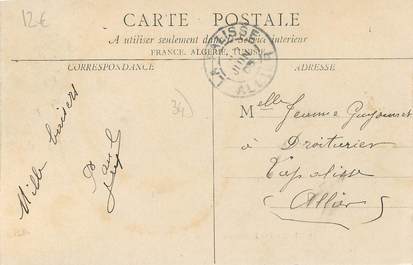 12€
CARTE POSTALE
A utiliser seulement dans le Service intérieur
FRANCE, ALGERIE, TUNISIE
CORRESPONDANCE
ADRESSE
LAPALISSE
ALLIER
34)
Mille baisers
Paul
Melle Jeanne
à
Droiturier
Lapalisse
(Allier)